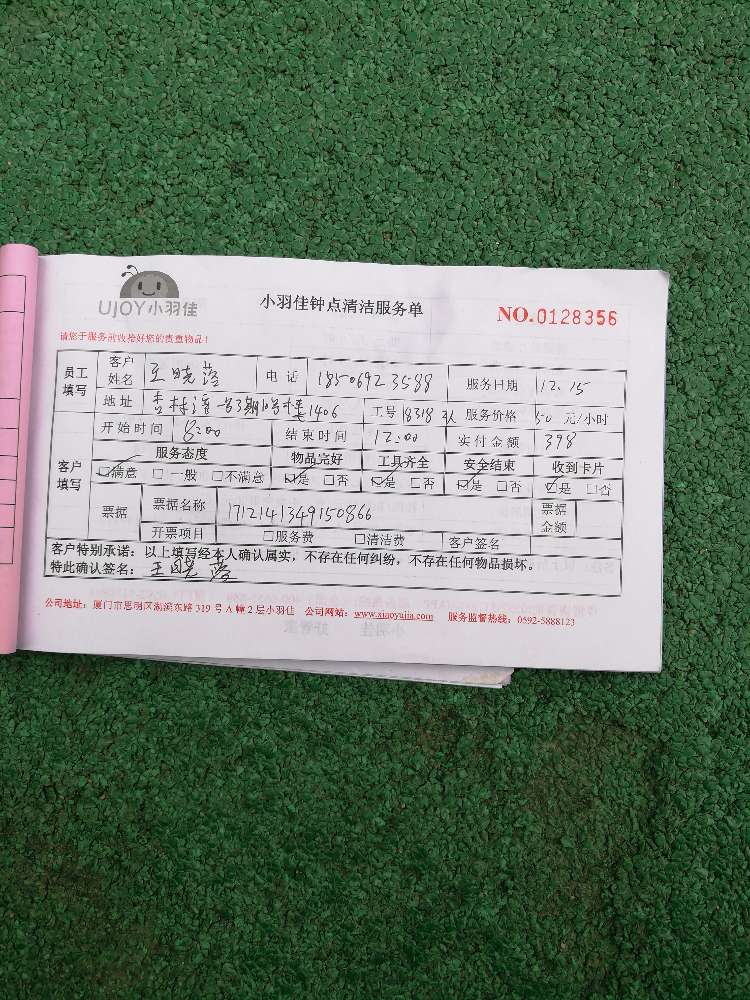 UJOY小羽佳
小羽佳钟点清洁服务单
NO.0128356
请您于服务前收拾好您的贵重物品！
员工填写 客户姓名 王晓蓉 电话 18506923588 服务日期 12.15
地址 杏林湾 3期 1406 工号 18318 服务价格 50 元/小时
客户填写 开始时间 8:00 结束时间 12:00 实付金额 398
服务态度 物品完好 工具齐全 安全结束 收到卡片
☑满意 □一般 □不满意 ☑是 □否 ☑是 □否 ☑是 □否 ☑是 □否
票据 票据名称 171214134915086 票据金额
开票项目 □服务费 □清洁费 客户签名
客户特别承诺：以上填写经本人确认属实，不存在任何纠纷，不存在任何物品损坏。
特此确认签名：王晓蓉
公司地址：厦门市思明区湖滨东路 319 号 A 幢 2 层小羽佳 公司网站：www.xiaoyujia.com 服务监督热线：0592-5888123